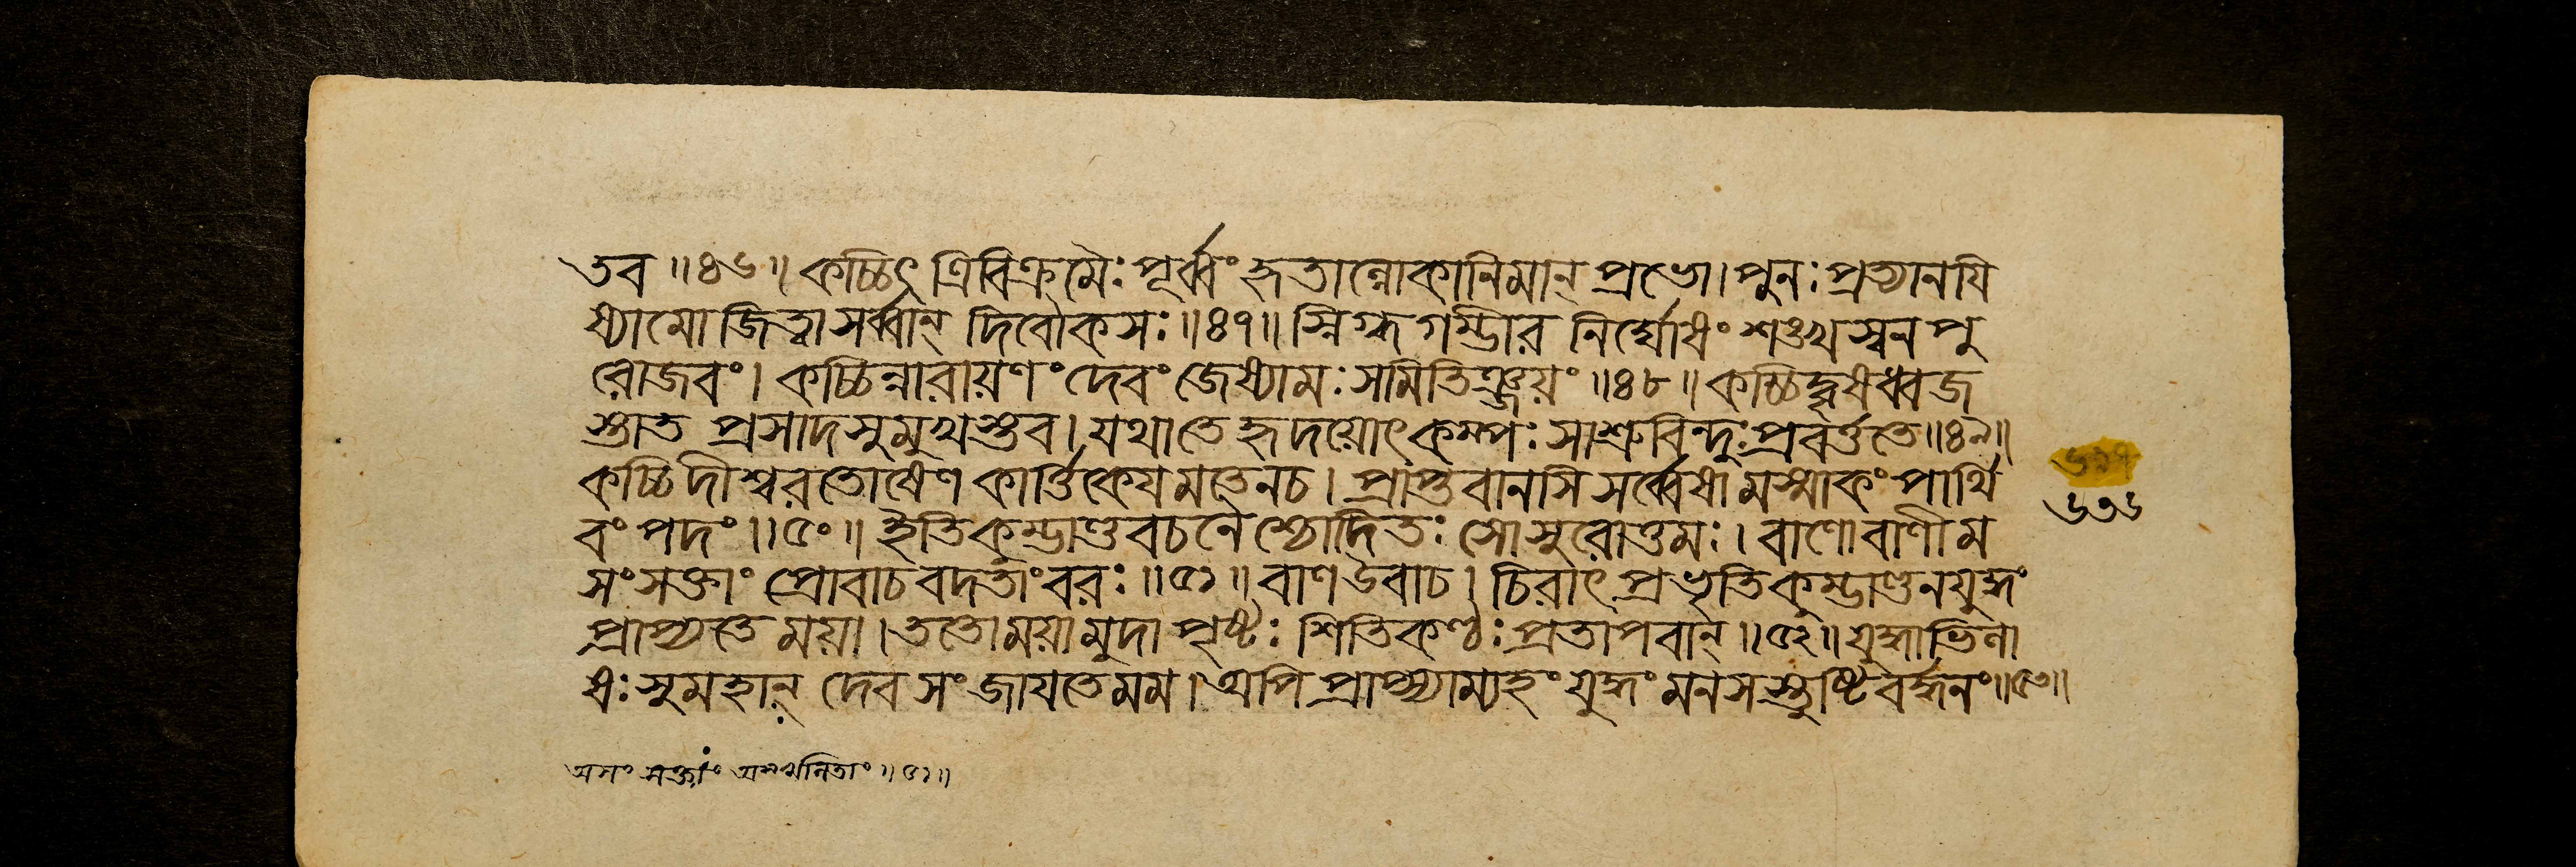 তব ॥৪৬॥ কচ্চিৎ ত্রিবিক্রমৈঃ পূর্ব্বং হৃতান্নোকানিমান্ প্রভো। পুনঃ প্রত্যানযি
ষ্যামো জিত্বা সর্ব্বান্ দিবৌকসঃ ॥৪৭॥ স্নিগ্ধ গম্ভীর নির্ঘোষং শঙ্খস্বনপু
রোজবং। কচ্চিন্নারায়ণং দেবং জেষ্যামঃ সমিতিঞ্জয়ং ॥৪৮॥ কচ্চিদ্বৃষধ্বজ
স্তাত প্রসাদসুমুখস্তব। যথা তে হৃদয়োৎকম্পঃ সাশ্রুবিন্দুঃ প্রবর্ত্ততে॥৪৯॥
কচ্চিদীশ্বরতোষেণ কার্ত্তিকেযমতেন চ। প্রাপ্তবানসি সর্ব্বেষামস্মাকং পার্থি
বং পদং ॥৫০॥ ইতি কুম্ভাণ্ডবচনৈশ্চোদিতঃ সোসুরোত্তমঃ। বাণো বাণীম
সংসক্তাং প্রোবাচ বদতাং বরঃ ॥৫১॥ বাণ উবাচ। চিরাৎ প্রভৃতি কুম্ভাণ্ড ন যুদ্ধং
প্রাপ্যতে ময়া। ততো ময়া মুদা পৃষ্টঃ শিতিকণ্ঠঃ প্রতাপবান্ ॥৫২॥ যুদ্ধাভিলা
ষঃ সুমহান্ দেব সংজাযতে মম। অপি প্রাপ্স্যাম্যহং যুদ্ধং মনসস্তুষ্টিবর্দ্ধনং॥৫৩॥
৬৩৬
অসং সক্তাং অস্খলিতাং ॥৫১॥